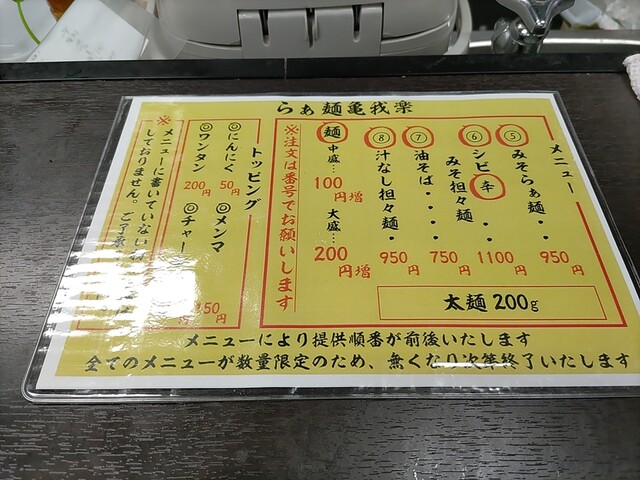 らぁ麺亀我楽
メニュー
⑤ みそらぁ麺・・ 950円
⑥ シビ辛みそ担々麺・・ 1100円
⑦ 油そば・・・・ 750円
⑧ 汁なし担々麺・・ 950円
麺 中盛… 100円増 大盛… 200円増
※注文は番号でお願いします
太麺200g
トッピング
◎にんにく 50円
◎メンマ
◎ワンタン 200円
◎チャー
50円
※メニューに書いていない
しておりません。ご了承
メニューにより提供順番が前後いたします
全てのメニューが数量限定のため、無くなり次第終了いたします